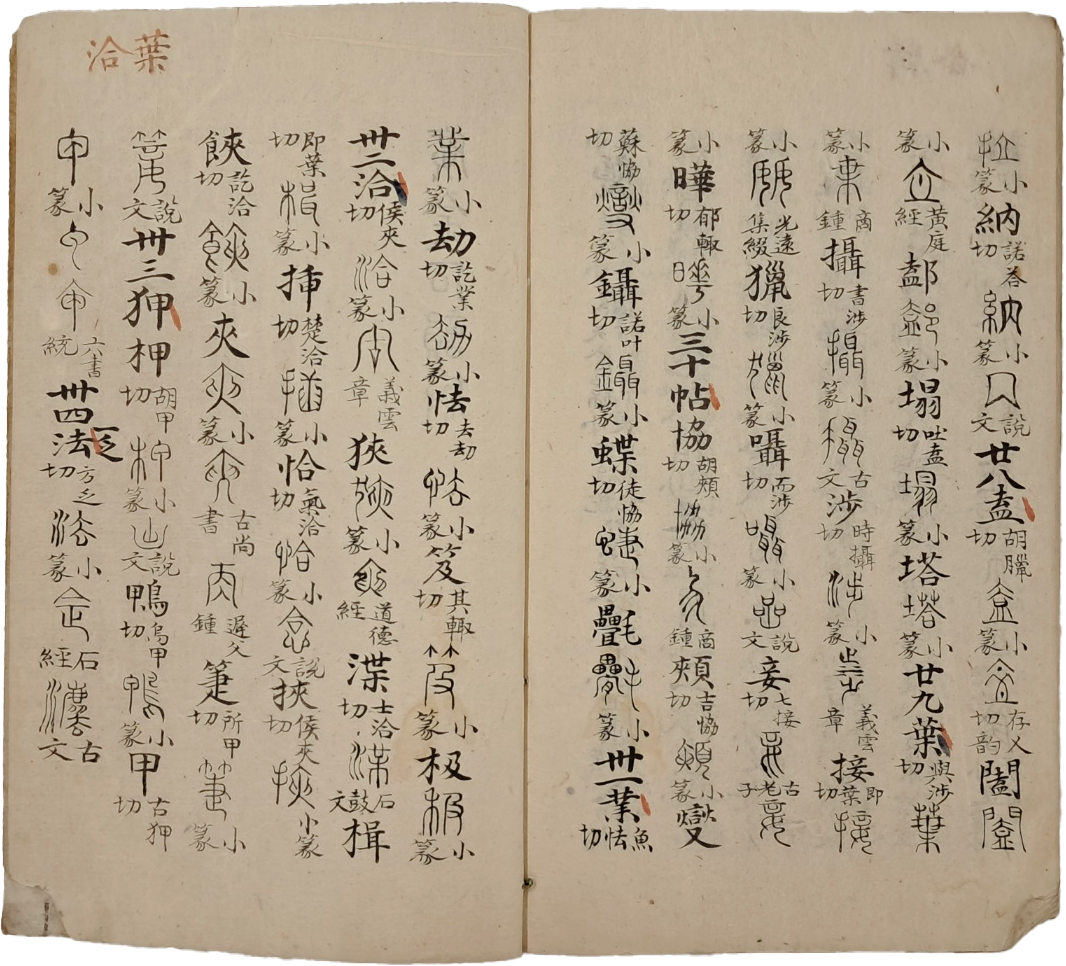 小篆納諾荅切小篆說文廿八盍胡臘切小篆存乂切韵闔
小篆黃庭經小篆塌吐盍切塌小篆塔塔小篆廿九葉與涉切葉
小篆商鍾攝書涉切攝小篆古文涉時攝切涉小篆義雲章接即葉切接
小篆光遠集綴獵良涉切獵小篆囁而涉切囁小篆說文妾七接切古老子
小篆曄郁輒切曄小篆三十帖協胡頰切協小篆商鍾頰吉協切頰小篆燮
蘇協切燮小篆鑷諾叶切鑷小篆蝶徒協切蝶小篆氎小篆卅一業魚怯切
業小篆劫訖業切劫小篆怯去劫切怯小篆笈其輒切笈小篆极极小篆
卅二洽侯夾切洽小篆義雲章狹狹小篆道德經渫士洽切渫石鼓文楫
即葉切楫小篆插楚洽切插小篆恰氣洽切恰小篆說文挾侯夾切挾小篆
餄訖洽切小篆夾夾小篆古尚書遲父鍾箑所甲切箑小篆
說文卅三狎柙胡甲切柙小篆說文鴨烏甲切鴨小篆甲古狎切
小篆六書統卅四法乏方乏切法小篆石經灋古文
葉
洽